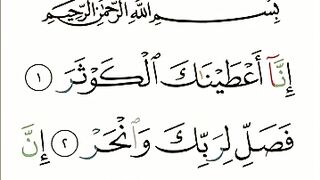 بِسْمِ اللَّهِ الرَّحْمَٰنِ الرَّحِيمِ
إِنَّآ أَعْطَيْنَٰكَ ٱلْكَوْثَرَ ١
فَصَلِّ لِرَبِّكَ وَٱنْحَرْ ٢ إِنَّ